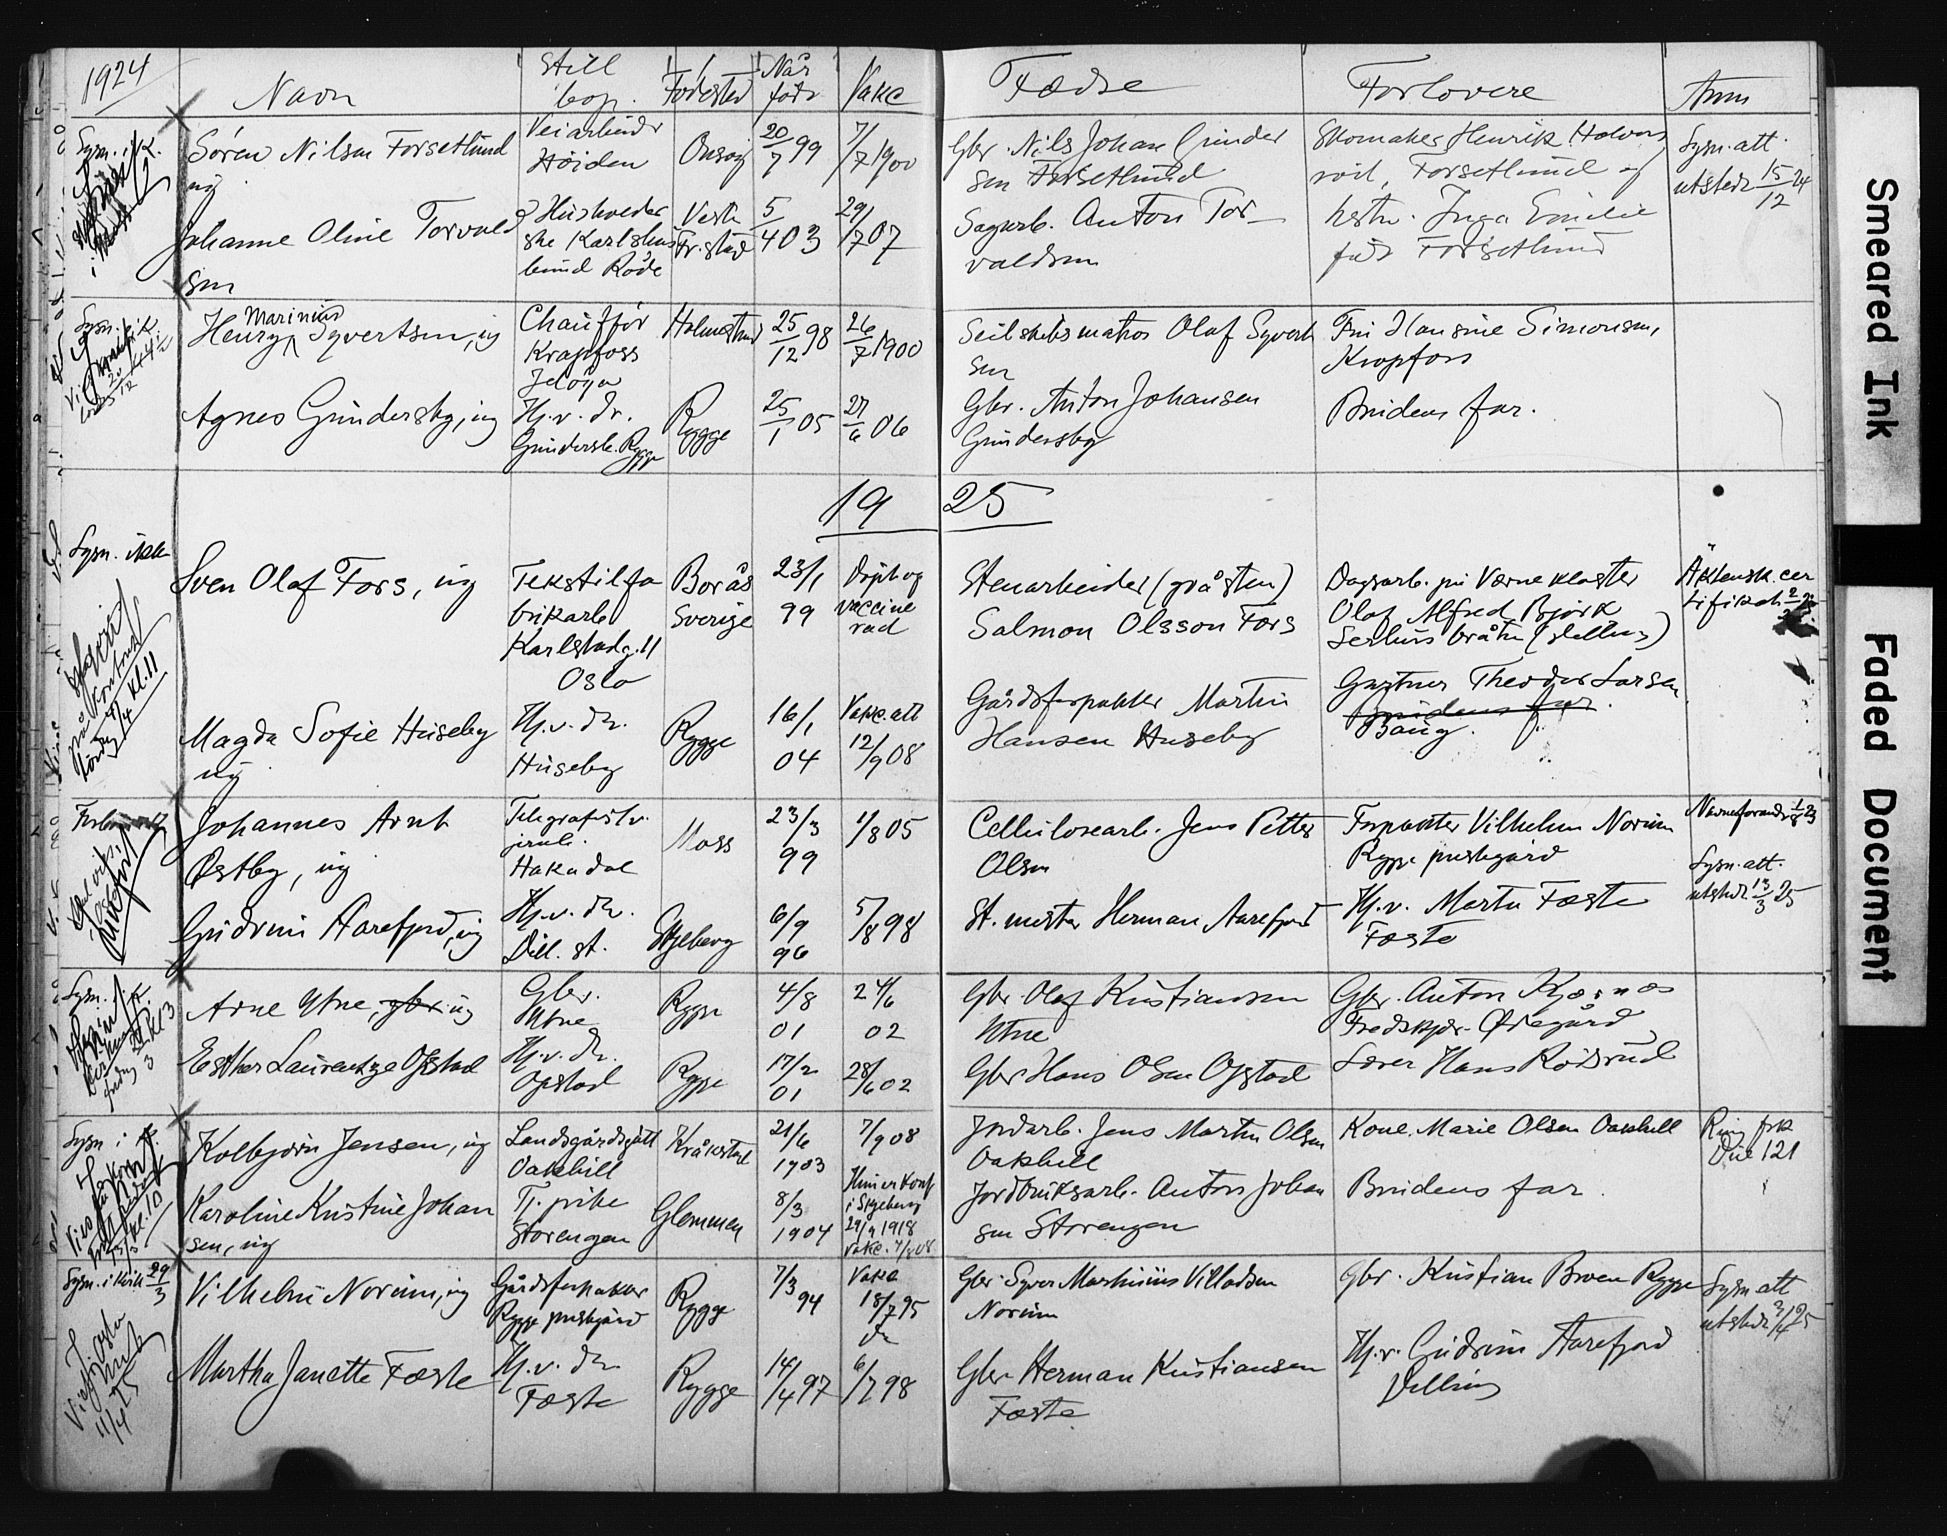 1924
Navn
Still
bop.
Fødested
Når
født
Vakc
Fædre
Forlovere
Anm
Søren Nilsen Forsetlund
ug
Veiarbeider
Høiden
Onsøy
20/7 99
7/7 1900
Gbr. Nils Johan Gunder
sen Forsetlund
Skomaker Henrik Halvors
rød, Forsetlund og
Sysn. att.
utstedt 15/12 24
Johanne Oline Torvald
sen
Husholder
ske Karlshus
lund Råde
Vestre
Fr.stad
5/4 03
29/7 07
Sagarb. Anton Tor-
valdsen
hustru Inga Emilie
født Forsetlund
Henry Marinius Syvertsen, ug
Chauffør
Krapfoss
Jeløya
Holmestrand
25/12 98
26/7 1900
Seilskibsmatros Olaf Syvert
sen
Fru Hansine Simonsen,
Kropfoss
Agnes Gundersby, ug
Hj.v. dr.
Gundersb. Rygge
Rygge
25/1 05
27/6 06
Gbr. Anton Johansen
Gundersby
Brudens far.
19 25
Sysn. ikke
Sven Olof Fors, ug
Tekstilfa
brikarb
Karlstadg. 11
Oslo
Borås
Sverige
23/1
99
Dåp og
vaccine
rad
Stenarbeider (gråsten)
Salmon Olsson Fors
Dagsarb. på Værne kloster
Olof Alfred Bjørk
Äktensk. cer
tifikat
på kontoret
kl. 11
Magda Sofie Huseby
ug
Hj.v. dr.
Huseby
Rygge
16/1
04
Vakc. att
12/9 08
Gårdsforpakter Martin
Hansen Huseby
Gartner Theodor Larsen
Brudens far.
Baug.
Johannes Arnt
Østby, ug
Telegrafist v.
jernb.
Hakadal
Moss
23/3
99
1/8 05
Cellulosearb. Jens Petter
Olsen
Forpakter Vilhelm Norum
Rygge prestegård
Navneforandr. 1/8 23
Sysn. att.
utstedt 13/3 25
Gudrun Aarefjord, ug
Hj.v. dr.
Dill. st.
Skjeberg
6/9
96
5/8 98
St. mester Herman Aarefjord
Hj.v. Marta Fæste
Fæste
Arne Utne, gbr. ug
Gbr.
Utne
Rygge
4/8
01
24/6
02
Gbr Olaf Kristiansen
Utne
Gbr. Anton Kjærnæs
Fredskjær - Øregård
Esther Laurentze Opstad
Hj.v. dr.
Opstad
Rygge
17/2
01
28/6 02
Gbr Hans Olsen Opstad
Lærer Hans Rødsrud
Kolbjørn Jensen, ug
Landsgårdsgutt
Oakhill
Kråkstad
21/6
1903
7/9 08
Jordarb. Jens Martin Olsen
Oakhill
Kone Marie Olsen Oakhill
Karoline Kristine Johan
sen, ug
Tj. pike
Storengen
Glemmen
8/3
1904
Hun er konf
i Skjeberg
29/9 1918
Vakc. 7/8 08
Jordbruksarb. Anton Johan
sen Storengen
Brudens far.
Vilhelm Norum, ug
Gårdsforpakter
Rygge prestegård
Rygge
7/3 94
Vakc
18/7 95
Gbr. Syver Marthinius Villadsen
Norum
Gbr. Kristian Broen Rygge
Sysn att
utstedt 3/4 25
Martha Janette Fæste
Hj.v. dr.
Fæste
Rygge
14/4 97
6/7 98
Gbr. Herman Kristiansen
Fæste
Hj.v. Gudrun Aarefjord
Dilling
Smeared Ink
Faded Document